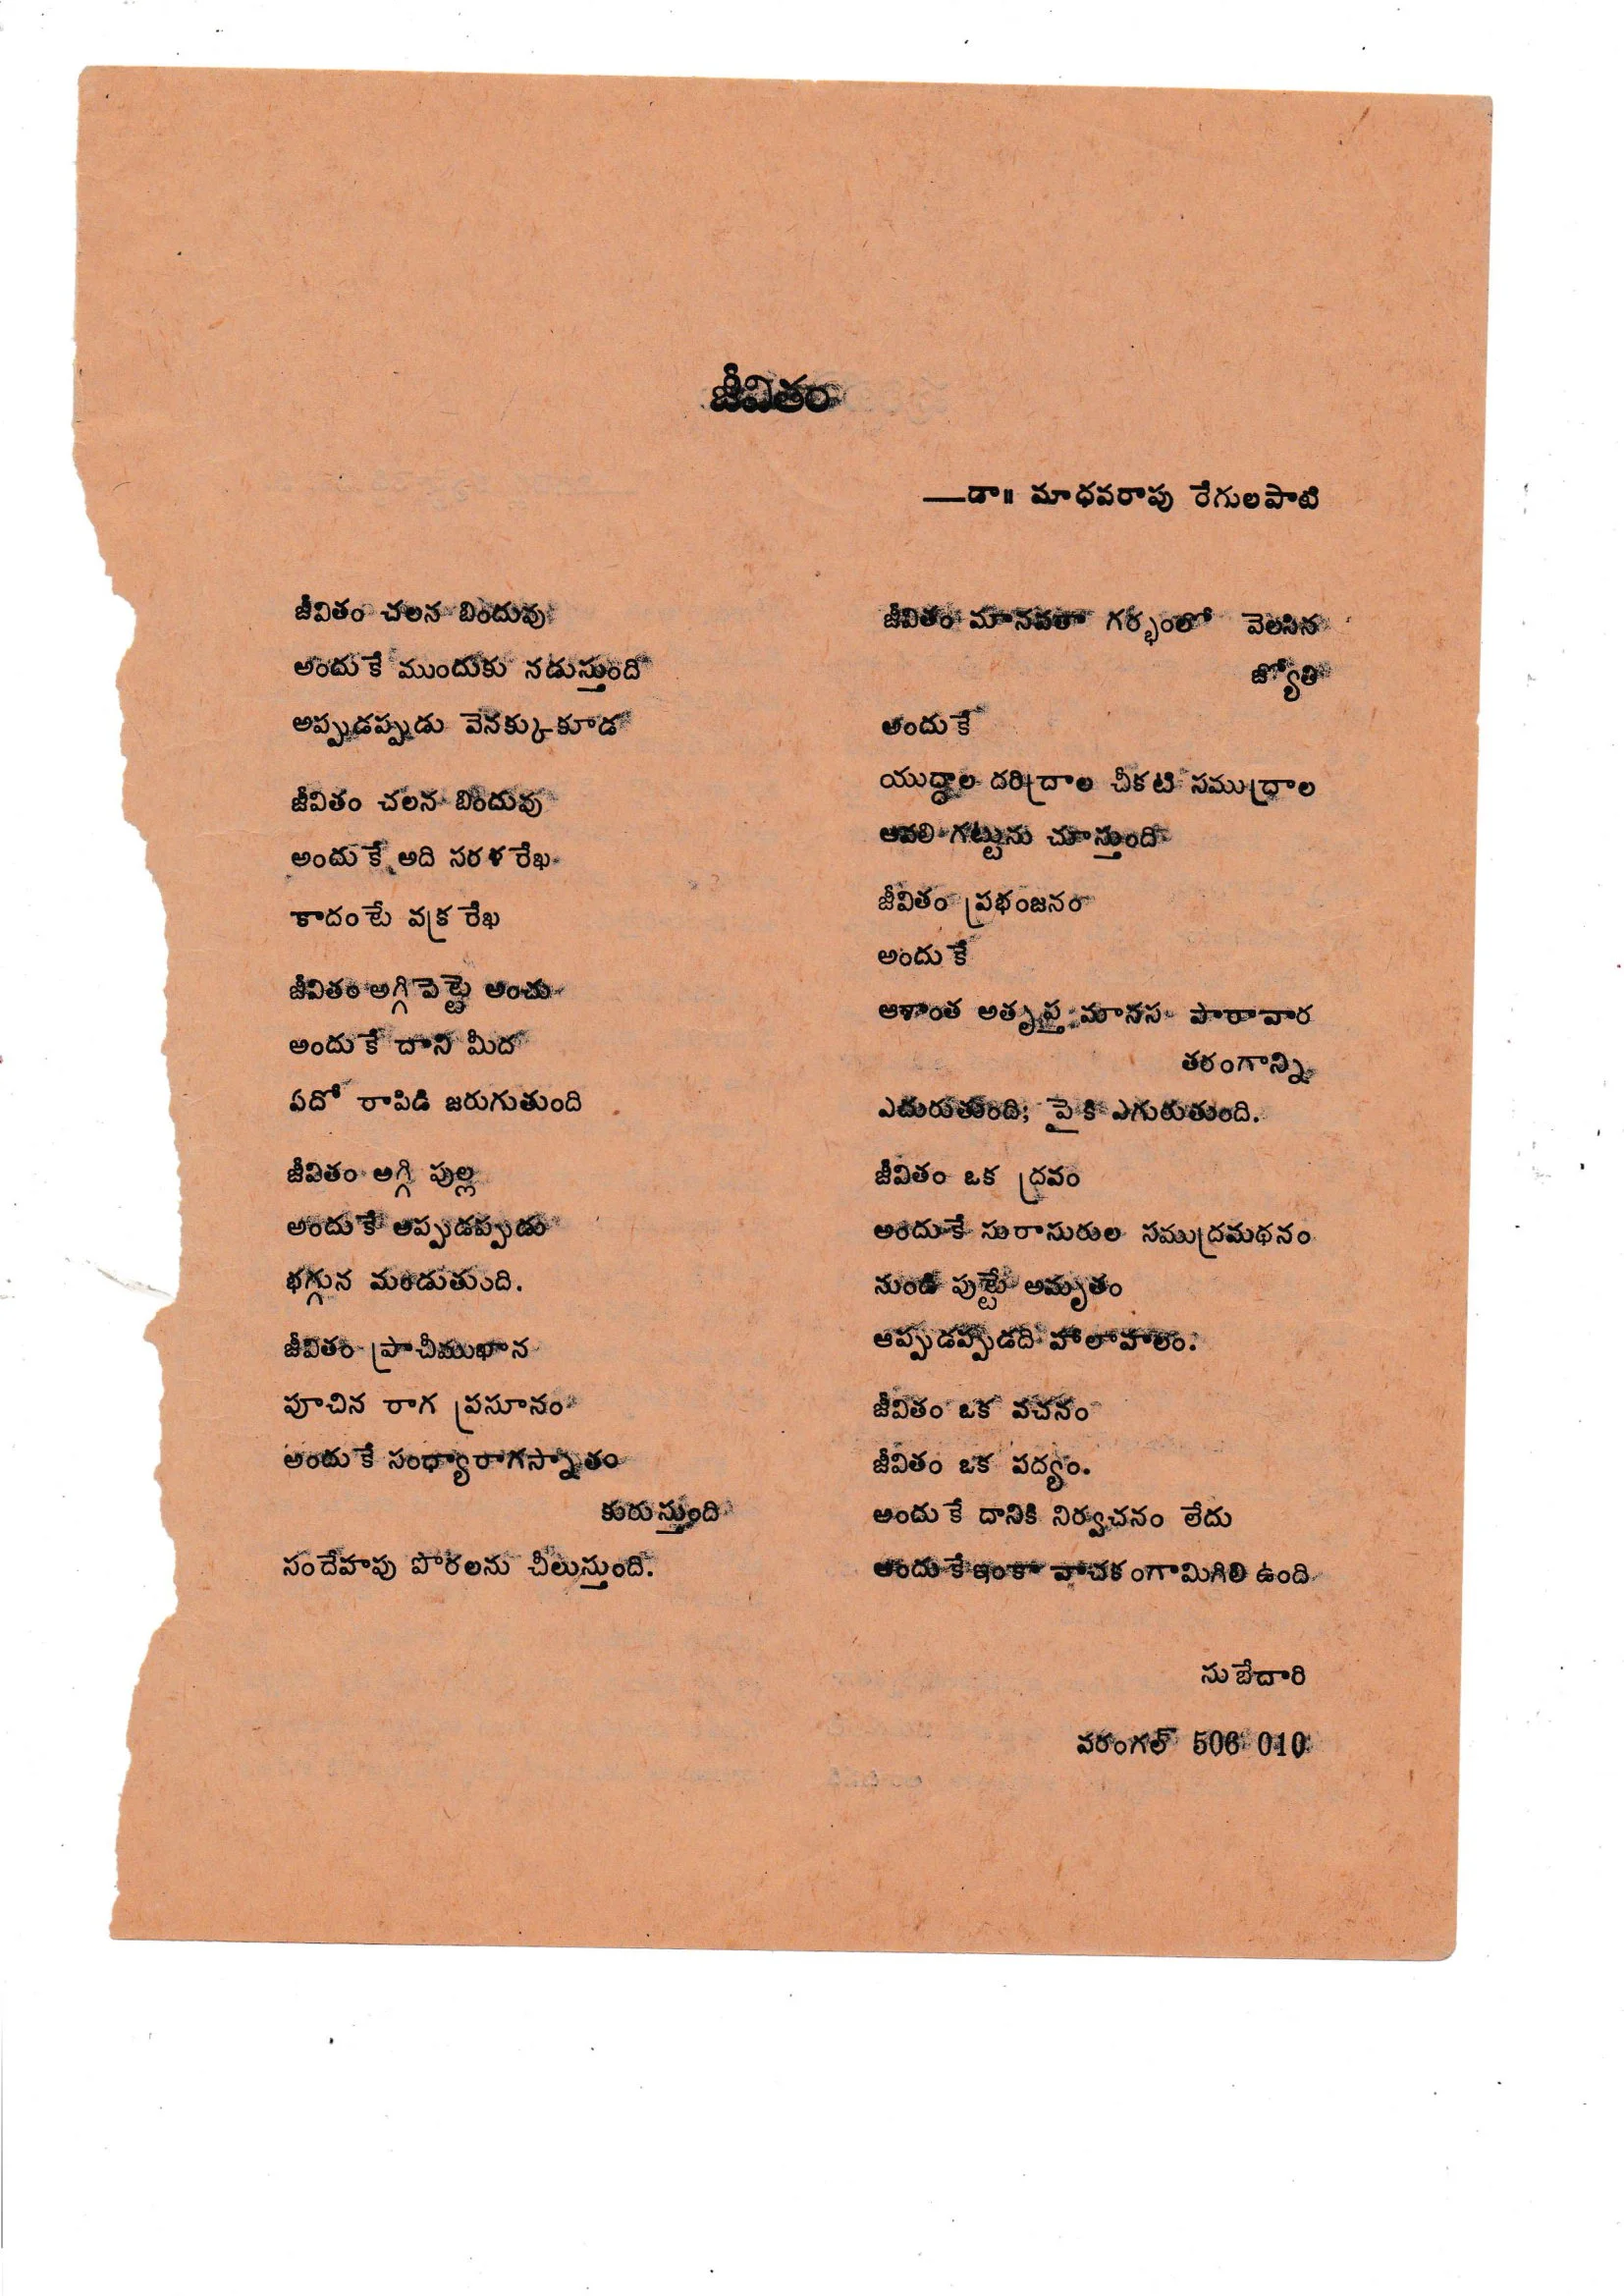 జీవితం
—డా॥ మాధవరావు రేగులపాటి
జీవితం చలన బిందువు
అందుకే ముందుకు నడుస్తుంది
అప్పుడప్పుడు వెనక్కుకూడ
జీవితం చలన బిందువు
అందుకే అది సరళ రేఖ
కాదంటే వక్ర రేఖ
జీవితం అగ్గి పెట్టె అంచు
అందుకే దాని మీద
ఏదో రాపిడి జరుగుతుంది
జీవితం అగ్గి పుల్ల
అందుకే అప్పుడప్పుడు
భగ్గున మండుతుంది.
జీవితం ప్రాచీముఖాన
పూచిన రాగ ప్రసూనం
అందుకే సంధ్యారాగస్నాతం
కురుస్తుంది
సందేహపు పొరలను చీలుస్తుంది.
జీవితం మానవతా గర్భంలో వెలసిన
జ్యోతి
అందుకే
యుద్ధాల దరిద్రాల చీకటి సముద్రాల
ఆవలి గట్టును చూస్తుంది
జీవితం ప్రభంజనం
అందుకే
అశాంత అతృప్త మానస పారావార
తరంగాన్ని
ఎదురుతుంది; పైకి ఎగురుతుంది.
జీవితం ఒక ద్రవం
అందుకే సురాసురుల సముద్రమథనం
నుండి పుట్టే అమృతం
అప్పుడప్పుడది హాలాహలం.
జీవితం ఒక వచనం
జీవితం ఒక పద్యం.
అందుకే దానికి నిర్వచనం లేదు
అందుకే ఇంకా వాచకంగా మిగిలి ఉంది
సుబేదారి
వరంగల్ 506 010